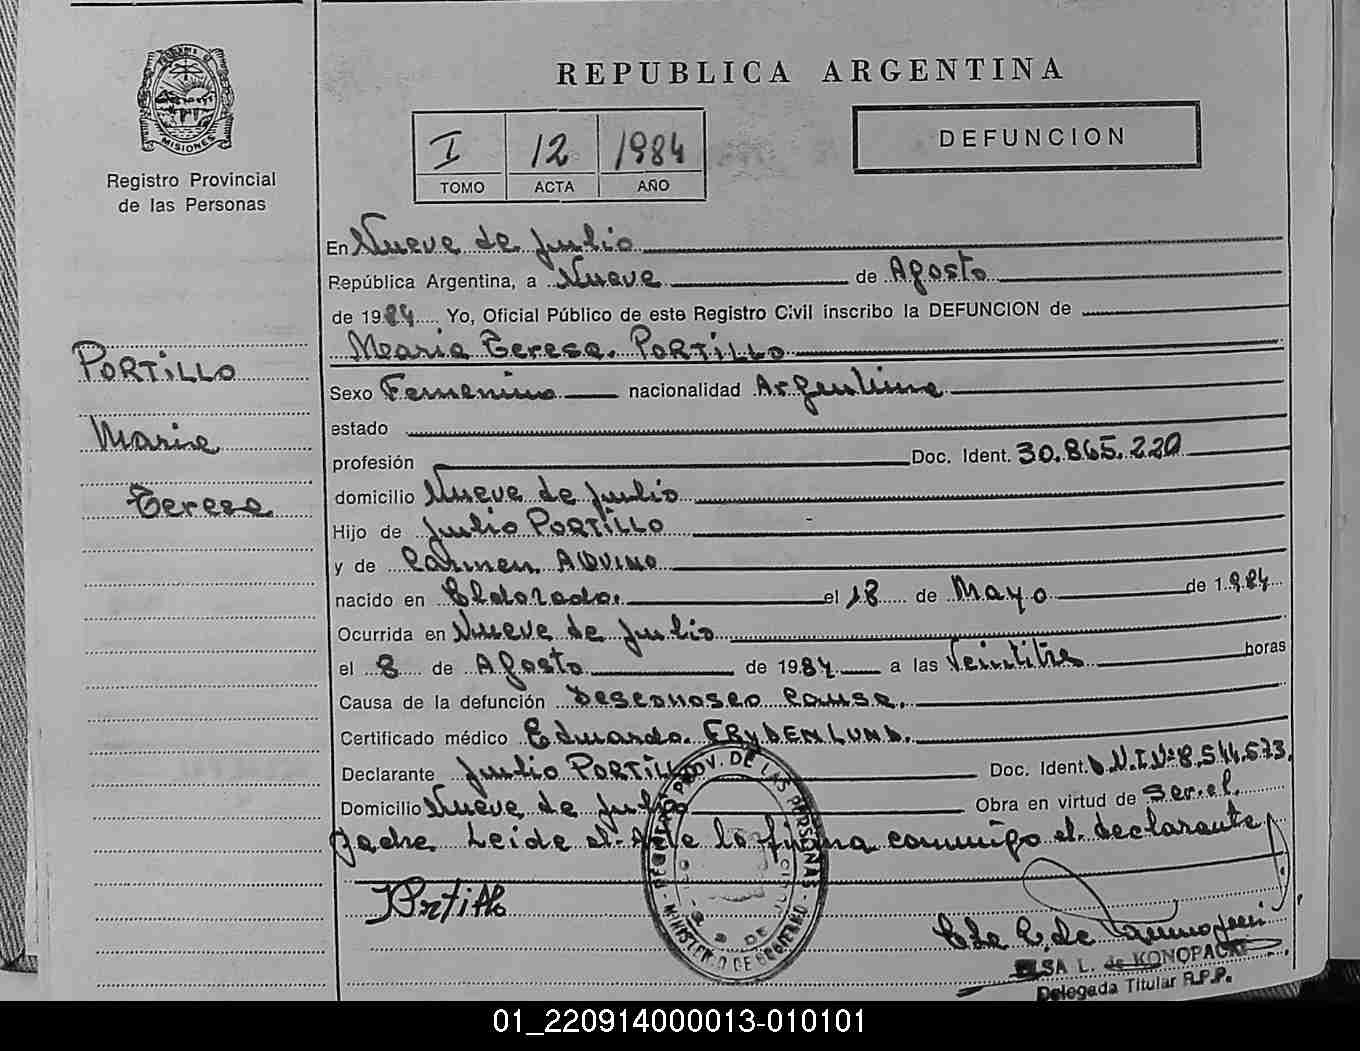 MISIONES
Registro Provincial
de las Personas
PORTILLO
Maria
Teresa
REPUBLICA ARGENTINA
I 12 1984
TOMO ACTA AÑO
DEFUNCION
En Nueve de Julio
República Argentina, a Nueve de Agosto
de 1984 Yo, Oficial Público de este Registro Civil inscribo la DEFUNCION de
Maria Teresa PORTILLO
Sexo Femenino nacionalidad Argentina
estado
profesión Doc. Ident. 30.865.220
domicilio Nueve de Julio
Hijo de Julio PORTILLO
y de Carmen AQUINO
nacido en Eldorado. el 18 de Mayo de 1.984
Ocurrida en Nueve de Julio
el 8 de Agosto de 1984 a las Veintitres horas
Causa de la defunción Desconoseo Causa.
Certificado médico Eduardo FRYDENLUND.
Declarante Julio PORTILLO Doc. Ident. D.N.I.Nº 8.544.573.
Domicilio Nueve de Julio Obra en virtud de Ser el
Padre Leida el Acta la firma conmigo el declarante
JPortillo
REGISTRO PROV. DE LAS PERSONAS
MINISTERIO DE GOBIERNO
9 DE JULIO
ELSA L. de KONOPACKI
Delegada Titular R.P.P.
01_220914000013-010101